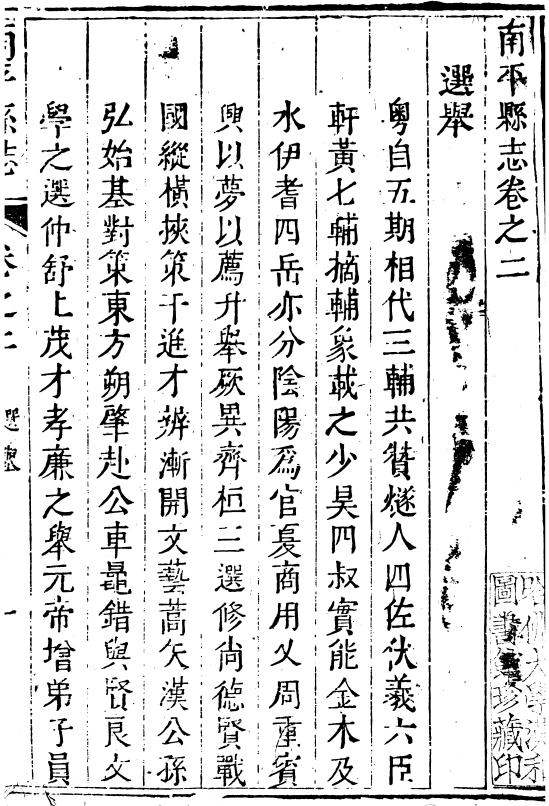 南平縣志卷之二
選舉
粤自五期相代三輔共贊燧人四佐伏羲六臣
軒黃七輔摘輔象載之少昊四叔實能金木及
水伊耆四岳亦分陰陽爲官夏商用乂周重賓
興以夢以薦升舉厥異齊桓三選修尙德賢戰
國縱橫挾策干進才辨漸開文藝蒿矢漢公孫
弘始基對策東方朔肇赴公車鼂錯與賢良文
學之選仲舒上茂才孝廉之舉元帝增弟子員
南平縣志
卷之二
選舉
一
圖書
珍藏印